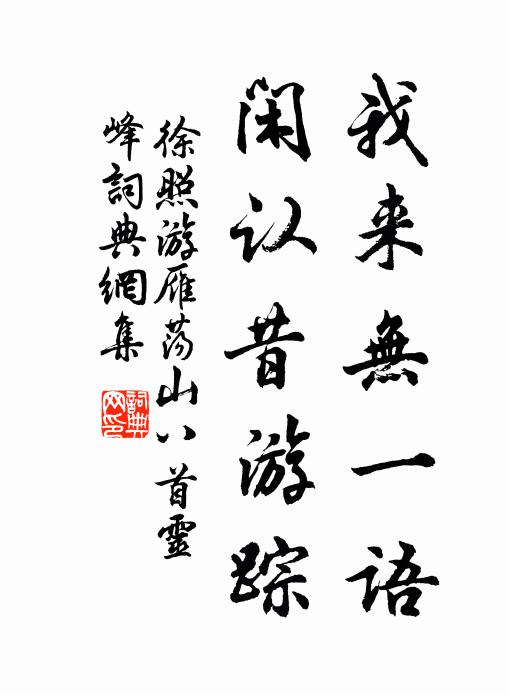 我来無一語
闲认昔游踪
徐照游雁荡山八首靈
峰詞典網集
詞典
网印